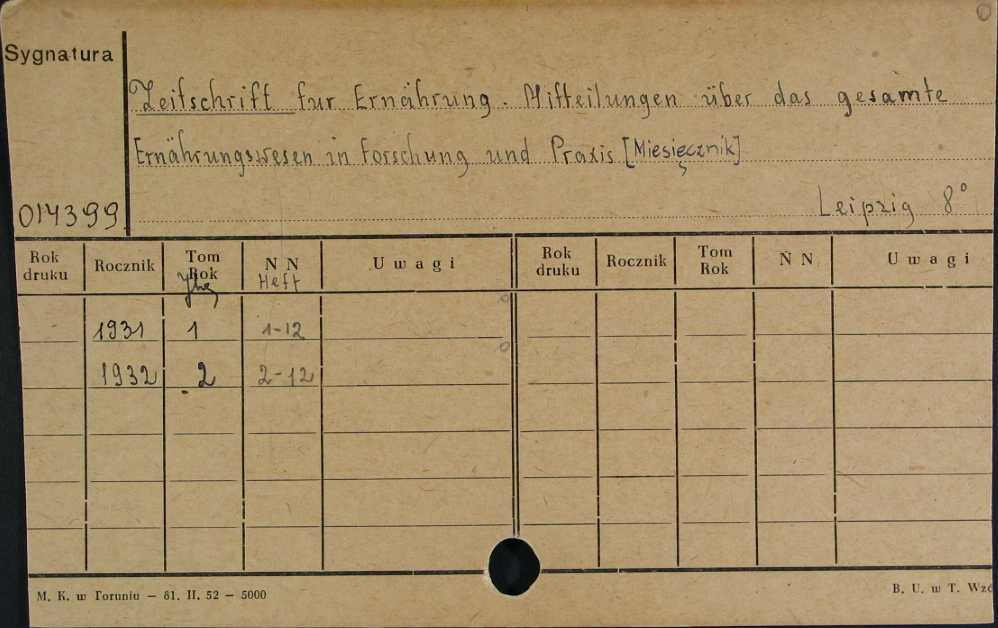 Sygnatura
Zeitschrift fur Ernährung. Mitteilungen über das gesamte
Ernährungswesen in Forschung und Praxis [Miesięcznik]
014399
Leipzig 8°
Rok druku Rocznik Tom Rok N N Uwagi Rok druku Rocznik Tom Rok N N Uwagi
Jhg Heft
1931 1 1-12
1932 2 2-12
M. K. w Toruniu – 61. II. 52 – 5000
B. U. w T.